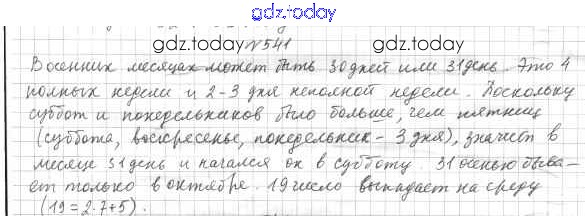 gdz.today
gdz.today №541 gdz.today
В осенних месяцах может быть 30 дней или 31 день. Это 4
полных недели и 2-3 дня неполной недели. Поскольку
суббот и понедельников было больше, чем пятниц
(суббота, воскресенье, понедельник - 3 дня), значит в
месяце 31 день и начался он в субботу. 31 осенью быва-
ет только в октябре. 19 число выпадает на среду
(19 = 2·7+5).
gdz.today gdz.today